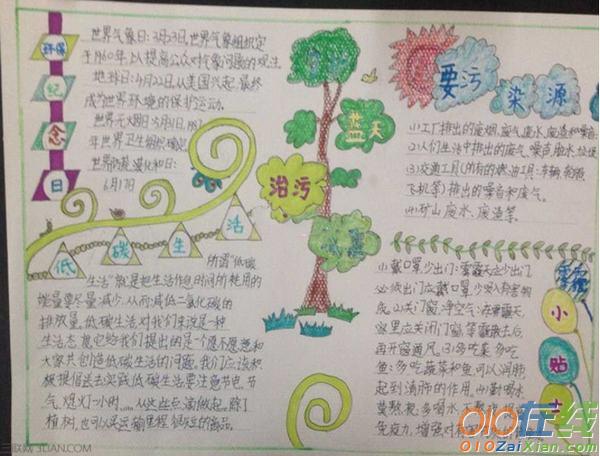 环保
纪
念
日
世界气象日:3月23日,世界气象组织定
于1960年,以提高公众对气象问题的观注。
地球日:4月22日,从美国兴起,最终
成为世界环境的保护运动。
世界无烟日:5月31日,1987
年世界卫生组织确定
世界防治漠化和日:
6月17日
低碳生活
所谓"低碳
生活"就是把生活作息时间所耗用的
能量要尽量减少,从而减低二氧化碳的
排放量。低碳生活对我们来说是一种
生活态度,它给我们提出的是个愿不愿意和
大家共创造低碳生活的问题。我们应该积
极提倡去实践低碳生活,要注意节电、节
气、熄灯一小时……从这些点滴做起。除了
植树,
蓝天
治污
要污
染源
(1)工厂排出的废烟、废气、废水、废渣和噪音
(2)人们生活中排出的废气、噪音、脏水、垃圾
(3)交通工具(所有的燃油工具:车辆、轮船、
飞机等)排出的噪音和废气。
(4)矿山废水、废渣等。
雾霾
小
贴
士
(1)戴口罩,少出门:雾霾天应少出门
必须出门应戴口罩,少吸入有害物
质。(2)关门窗,净空气:在雾霾天,
这里应关闭门窗,等雾霾散去后,
再开窗通风。(3)多吃菜,多吃
鱼:多吃蔬菜和鱼可以润肺
起到清肺的作用。(4)勤喝水
免疫力,增强对
010在线
010ZaiXian.com
三联网 3LIAN.COM